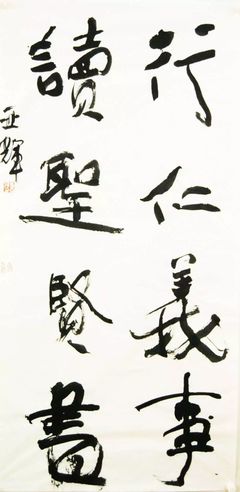 行仁義事
讀聖賢書
亚輝